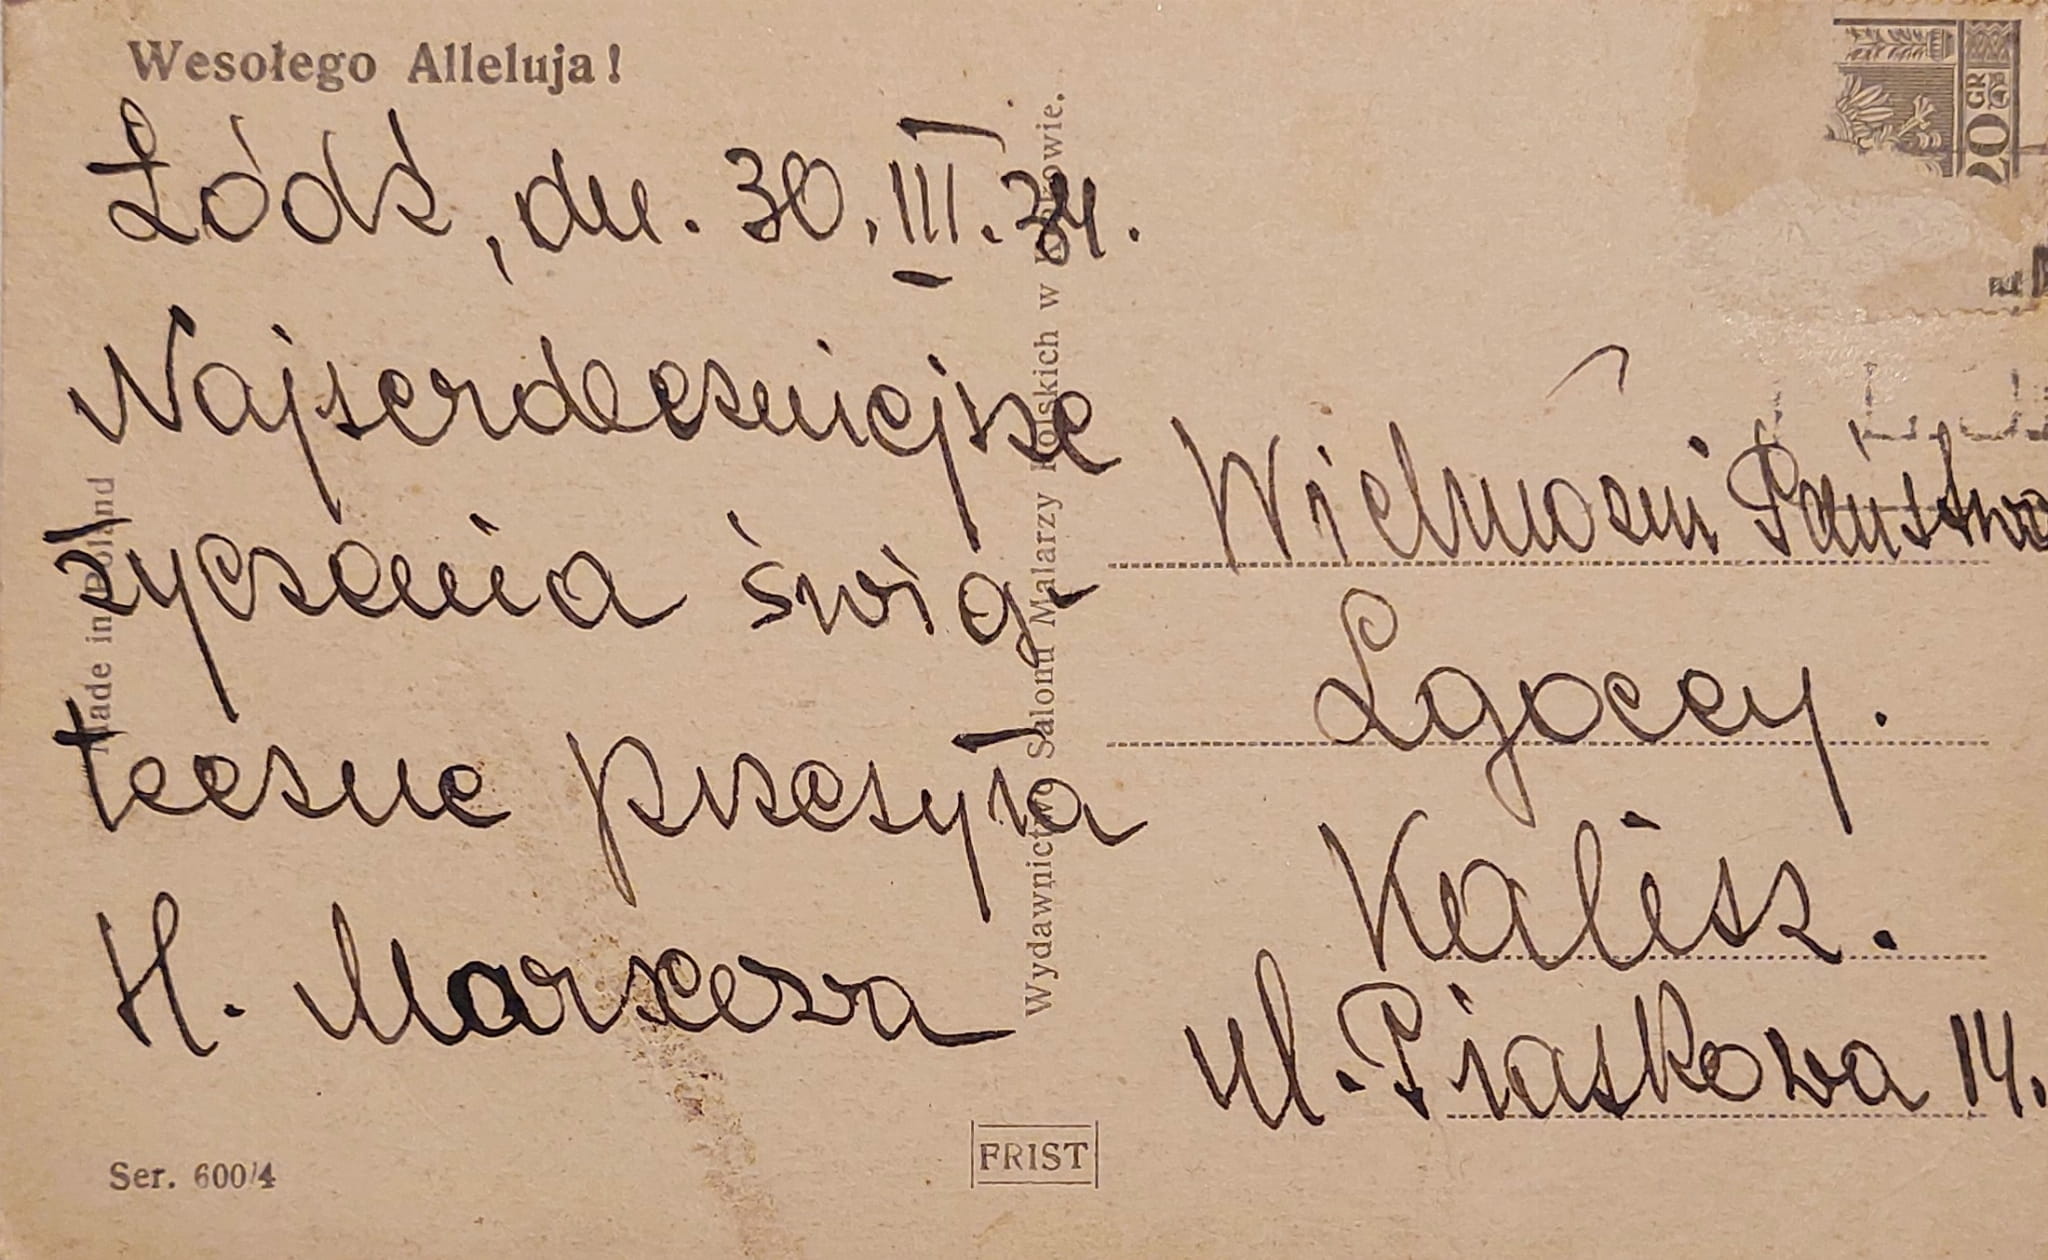 Wesołego Alleluja!
Łódź, dn. 30.III.34.
Najserdeczniejsze
życzenia świą-
teczne przesyła
H. Marxowa
Made in Poland
Ser. 600/4
Wydawnictwo Salonu Malarzy Polskich w Krakowie.
FRIST
20 GR
Wielmożni Państwo
Lgoccy.
Kalisz.
ul. Piaskowa 14.